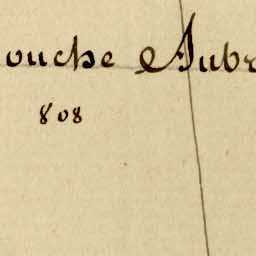 ouche Aubr
808